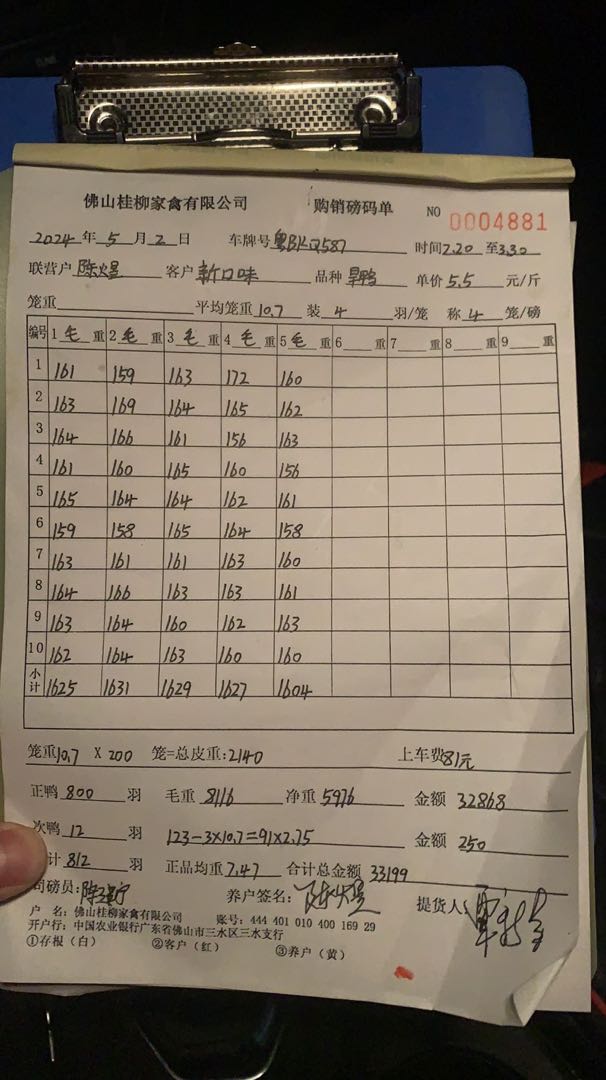 佛山桂柳家禽有限公司 购销磅码单 NO 0004881
2024年5月2日 车牌号粤BKQ587 时间2.20至3.30
联营户陈火星 客户新口味 品种旱鸭 单价5.5元/斤
笼重 平均笼重10.7 装4羽/笼 称4笼/磅
编号 1毛重 2毛重 3毛重 4毛重 5毛重 6重 7重 8重 9重
1 161 159 163 172 160
2 163 169 164 165 162
3 164 166 161 156 163
4 161 160 165 160 156
5 165 164 164 162 161
6 159 158 165 164 158
7 163 161 161 163 160
8 164 166 163 163 161
9 163 164 160 162 163
10 162 164 163 160 160
小计 1625 1631 1629 1627 1604
笼重10.7 X 200 笼=总皮重:2140 上车费81元
正鸭800羽 毛重8116 净重5976 金额32868
次鸭12羽 123-3×10.7=91×2.75 金额250
计812羽 正品均重7.47 合计总金额33199
司磅员: 养户签名:陈火星 提货人
户 名:佛山桂柳家禽有限公司 账号:444 401 010 400 169 29
开户行:中国农业银行广东省佛山市三水区三水支行
①存根(白) ②客户(红) ③养户(黄)